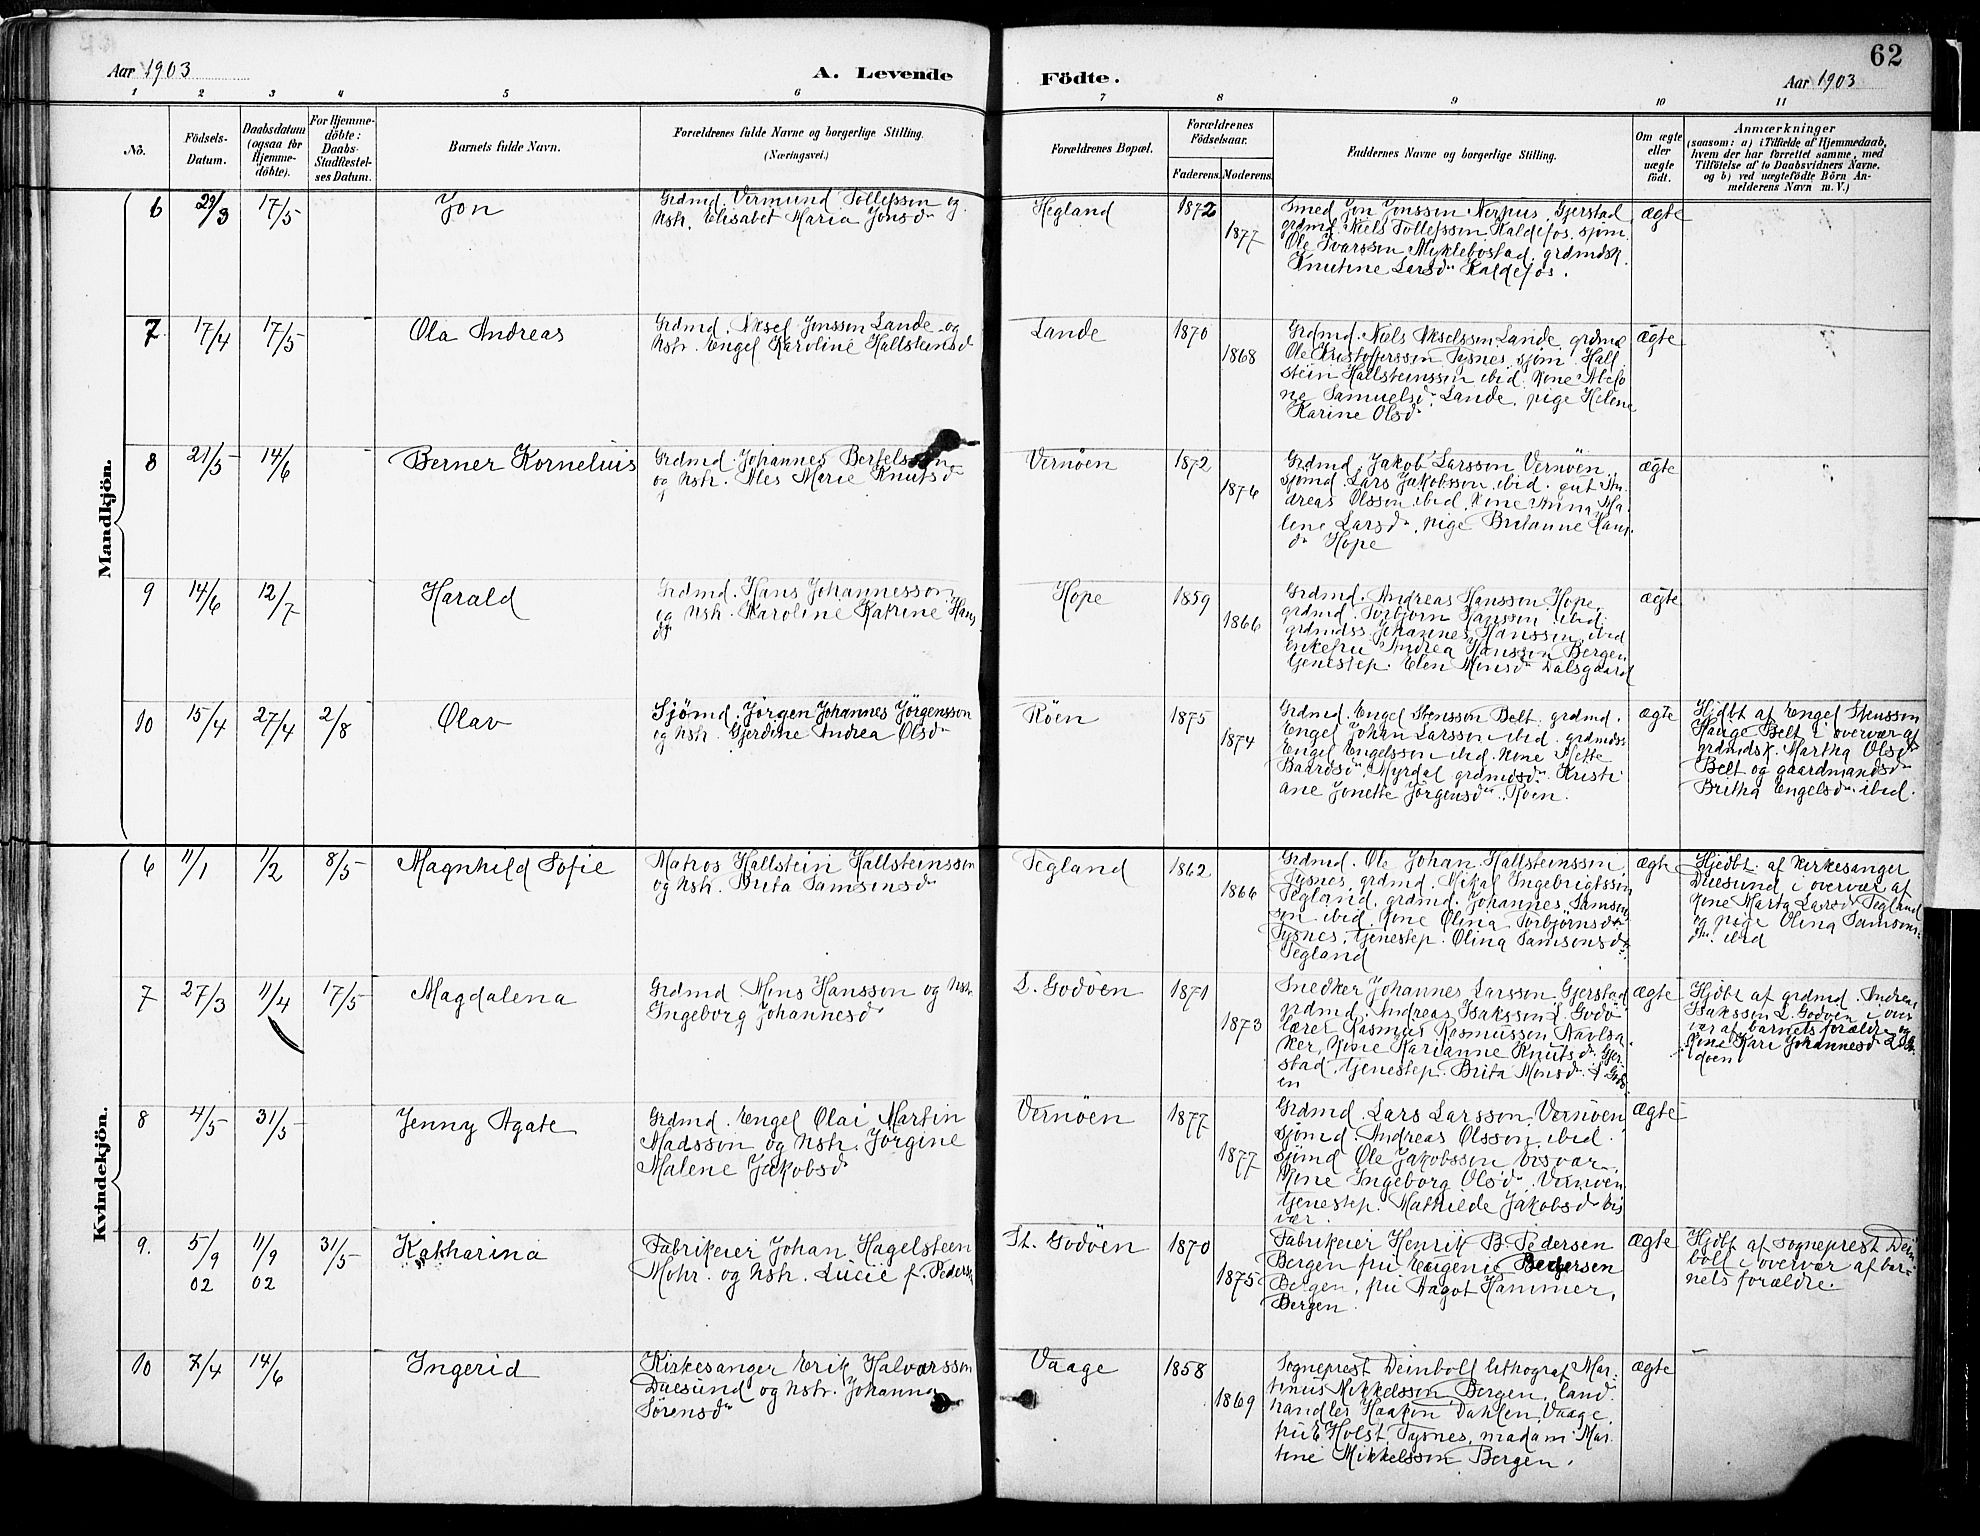 62
Aar 1903
A. Levende
Födte.
Aar 1903
1 2 3 4 5 6 7 8 9 10 11
Nô.
Födsels-
Datum.
Daabsdatum
(ogsaa for
Hjemme-
döbte).
For Hjemme-
döbte:
Daabs-
Stadfæstel-
ses Datum.
Barnets fulde Navn.
Forældrenes fulde Navne og borgerlige Stilling.
(Næringsvei.)
Forældrenes Bopæl.
Forældrenes
Födselsaar.
Faderens. Moderens.
Faddernes Navne og borgerlige Stilling.
Om ægte
eller
uægte
födt.
Anmærkninger
(saasom: a) i Tilfælde af Hjemmedaab,
hvem der har forrettet samme, med
Tilföielse af to Daabsvidners Navne,
og b) ved uægtefödte Börn An-
melderens Navn m. V.)
Mandkjön.
6 29/3 17/5 Jon
Grdmd. Vermund Tollefsson og
hstr. Elisabet Maria Jonsdr
Hegland 1872 1877
Smed Jon Jonsson Nerhus, Gjerstad
grdmd. Niels Tollefsson Kaldefos. sjøm.
Ole Ivarsson Myklebostad. grdmdsk.
Knutine Larsdr Kaldefos.
ægte
7 17/4 17/5 Ola Andreas
Grdmd. Aksel Jonsson Lande og
hstr. Engel Karoline Hallsteinsdr
Lande 1870 1868
Grdmd. Niels Akselsson Lande, grdmd
Ole Kristoffersson Tysnes, sjøm. Hall
stein Hallsteinsson ibid. Kone Abelo
ne Samuelsdr Lande, pige Helene
Karine Olsdr
ægte
8 21/5 14/6 Berner Kornelius
Grdmd. Johannes Bertelsson
og hstr. Ales Marie Knutsdr
Vernøen 1872 1876
Grdmd. Jakob Larsson Vernøen,
sjømd. Lars Jakobsson ibid. gut An-
dreas Olsson ibid. Kone Anna Ma-
lene Larsdr, pige Britanne Hans
dr Hope
ægte
9 14/6 12/7 Harald
Grdmd. Hans Johannesson
og hstr. Karoline Katrine Hans
dr
Hope 1859 1866
Grdmd. Andreas Hansson Hope,
grdmd. Torbjørn Hansson ibid.
grdmdss. Johannes Hansson ibid
Enkefru Andrea Hansson Bergen
tjenestep. Elen Monsdr Dalsgaard
ægte
10 15/4 27/4 2/8 Olav
Sjømd. Jørgen Johannes Jørgensson
og hstr. Gjerdine Andrea Olsdr
Røen 1875 1874
Grdmd. Engel Stensson Belt. grdmd.
Engel Johan Larsson ibid. grdmdss
Engel Engelsson ibid. Kone Mette
Baardsdr Myrdal grdmdsdr. Kristi
ane Jonette Jørgensdr Røen.
ægte
Hjdbt af Engel Stensson
Hauge Belt i overvær af
grdmdsk. Martha Olsdr
Belt og gaardmandsdr
Britha Engelsdr. ibid.
Kvindekjön.
6 11/1 1/2 8/5 Magnhild Sofie
Matros Hallstein Hallsteinsson
og hstr. Brita Samsonsdr
Tegland 1862 1866
Grdmd. Ole Johan Hallsteinsson
Tysnes, grdmd. Mikal Ingebrigtsson
Tegland, grdmd. Johannes Samson
son ibid. Kone Olina Torbjørnsdr
Tysnes, tjenestep. Olina Samsonsdr
Tegland
ægte
Hjedbt. af Kirkesanger
Duesund i overvær af
Kone Marta Larsdr Tegland
og pige Olina Samsons-
dtr. ibid
7 27/3 11/4 17/5 Magdalena
Grdmd. Mons Hansson og hstr.
Ingeborg Johannesdr
L. Godøen 1871 1873
Snedker Johannes Larsson Gjerstad
grdmd. Andreas Isaksson L. Godø
lærer Rasmus Rasmusson Navlsa
ker, Kone Karianne Knutsdr Gjer
stad, tjenestep. Brita Monsdr. L Godø
en
ægte
Hjdbt af grdmd. Andreas
Isaksson L. Godøen i over
vær af barnets forældre og
Kone Kari Johannesdr L Go
døen
8 4/5 31/5 Jenny Agate
Grdmd. Engel Olai Martin
Madsson og hstr. Jørgine
Malene Jakobsdr
Vernøen 1877 1877
Grdmd. Lars Larsson Vernøen
sjømd. Andreas Olsson ibid.
sjømd Ole Jakobsson Bisvær.
Kone Ingeborg Olsdr. Vernøen
tjenestep. Mathilde Jakobsdr Bis
vær.
ægte
9. 5/9 02 11/9 02 31/5 Katharina
Fabrikeier Johan Hagelsteen
Mohr. og hstr. Lucie f. Pedersen
St. Godøen 1870 1875
Fabrikeier Henrik B. Pedersen
Bergen fru Eugenie Pedersen
Bergen, fru Aagot Hammer,
Bergen.
ægte
Hjdbt af sogneprest Dein
boll i overvær af bar-
nets forældre.
10 7/4 14/6 Ingerid
Kirkesanger Erik Halvorsson
Duesund og hstr. Johanna
Sørensdr
Vaage 1858 1869
Sogneprest Deinboll lithograf Mar-
tinus Mikkelsson Bergen, land
handler Haakon Dahlen, Vaage,
fru E Holst Tysnes, madam Mar-
tine Mikkelsson Bergen.
ægte